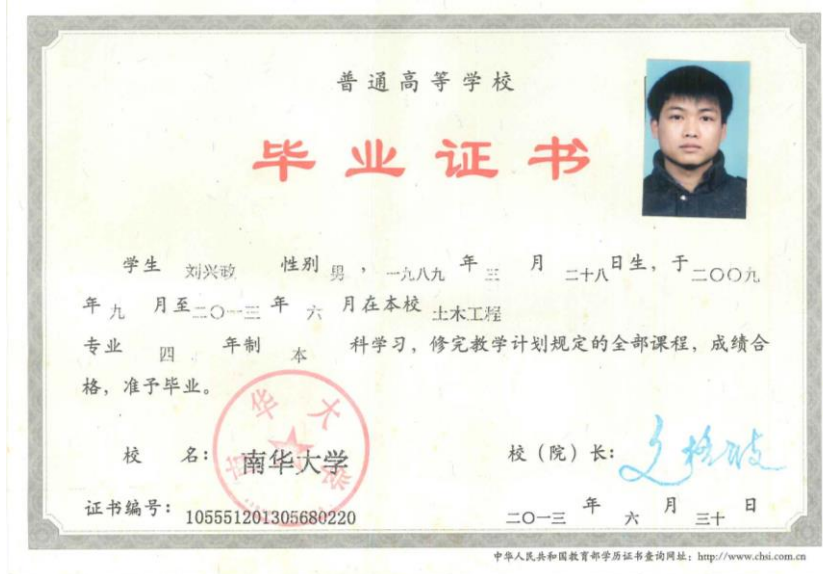 普通高等学校
毕业证书
学生 刘兴敢 性别 男 ，一九八九 年 三 月 二十八日生，于二〇〇九
年 九 月至二〇一三 年 六 月在本校 土木工程
专业 四 年制 本 科学习，修完教学计划规定的全部课程，成绩合
格，准予毕业。
校 名：南华大学
校（院）长：
证书编号：105551201305680220
二〇一三 年 六 月 三十 日
中华人民共和国教育部学历证书查询网址：http://www.chsi.com.cn